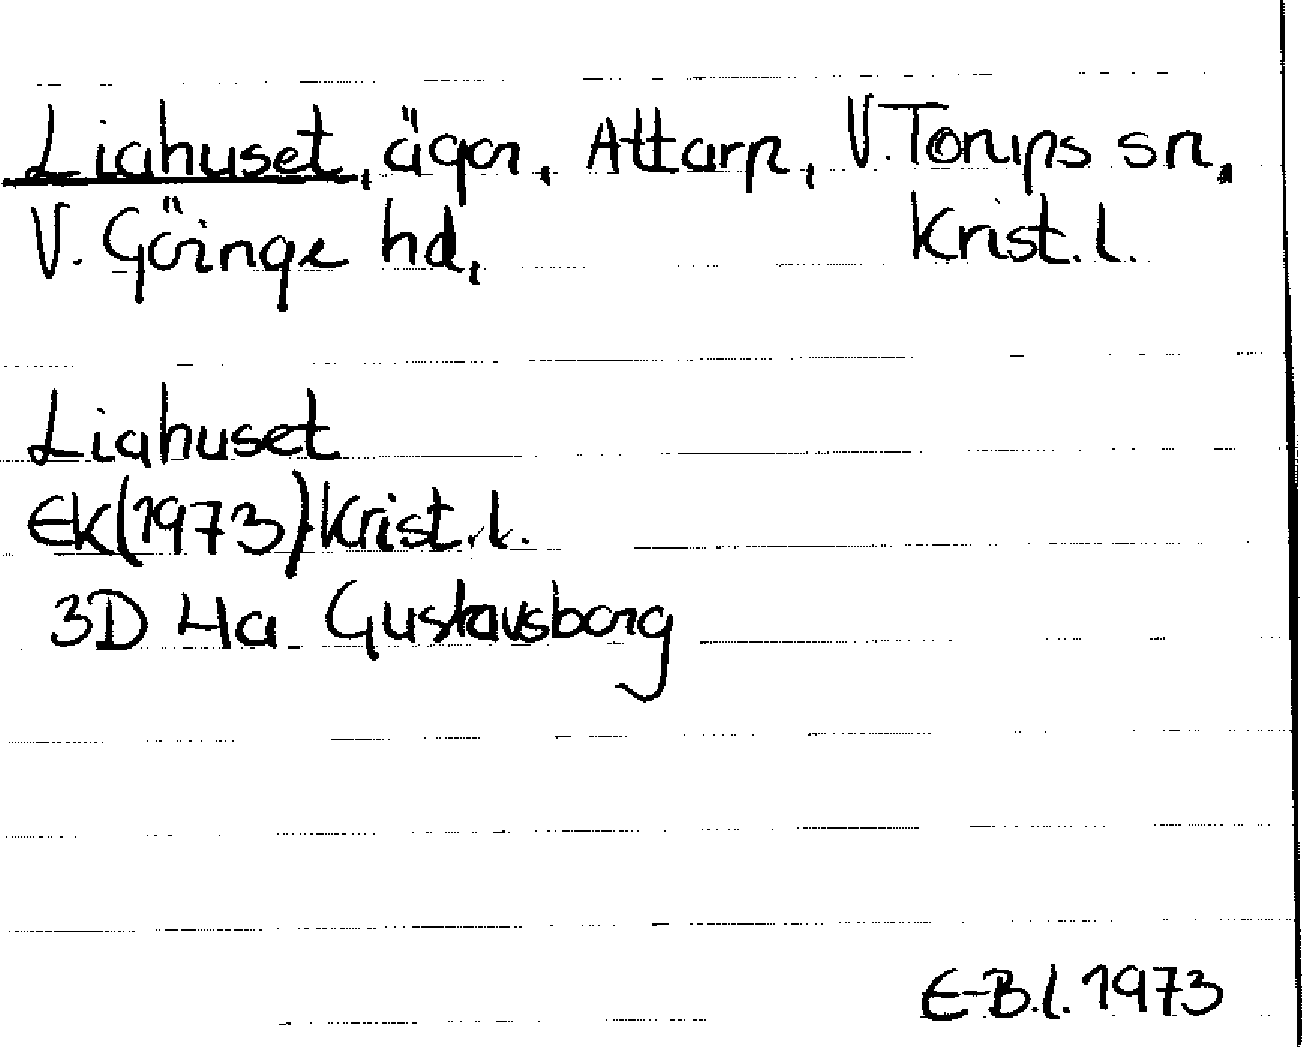 Liahuset, ägor, Attarp, V. Torups sn,
V. Göinge hd, Krist. l.
Liahuset
EK(1973) Krist. l.
3D 4a Gustavsborg
E-B.l. 1973